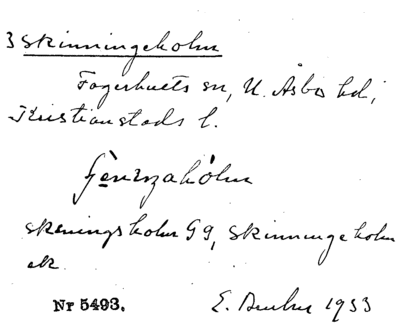 3 Skinningeholm
Fagerhults sn, N. Åsbo hd,
Kristianstads l.
skenings holm Gg, Skinningeholm
ek.
Nr 5493. E. 1933